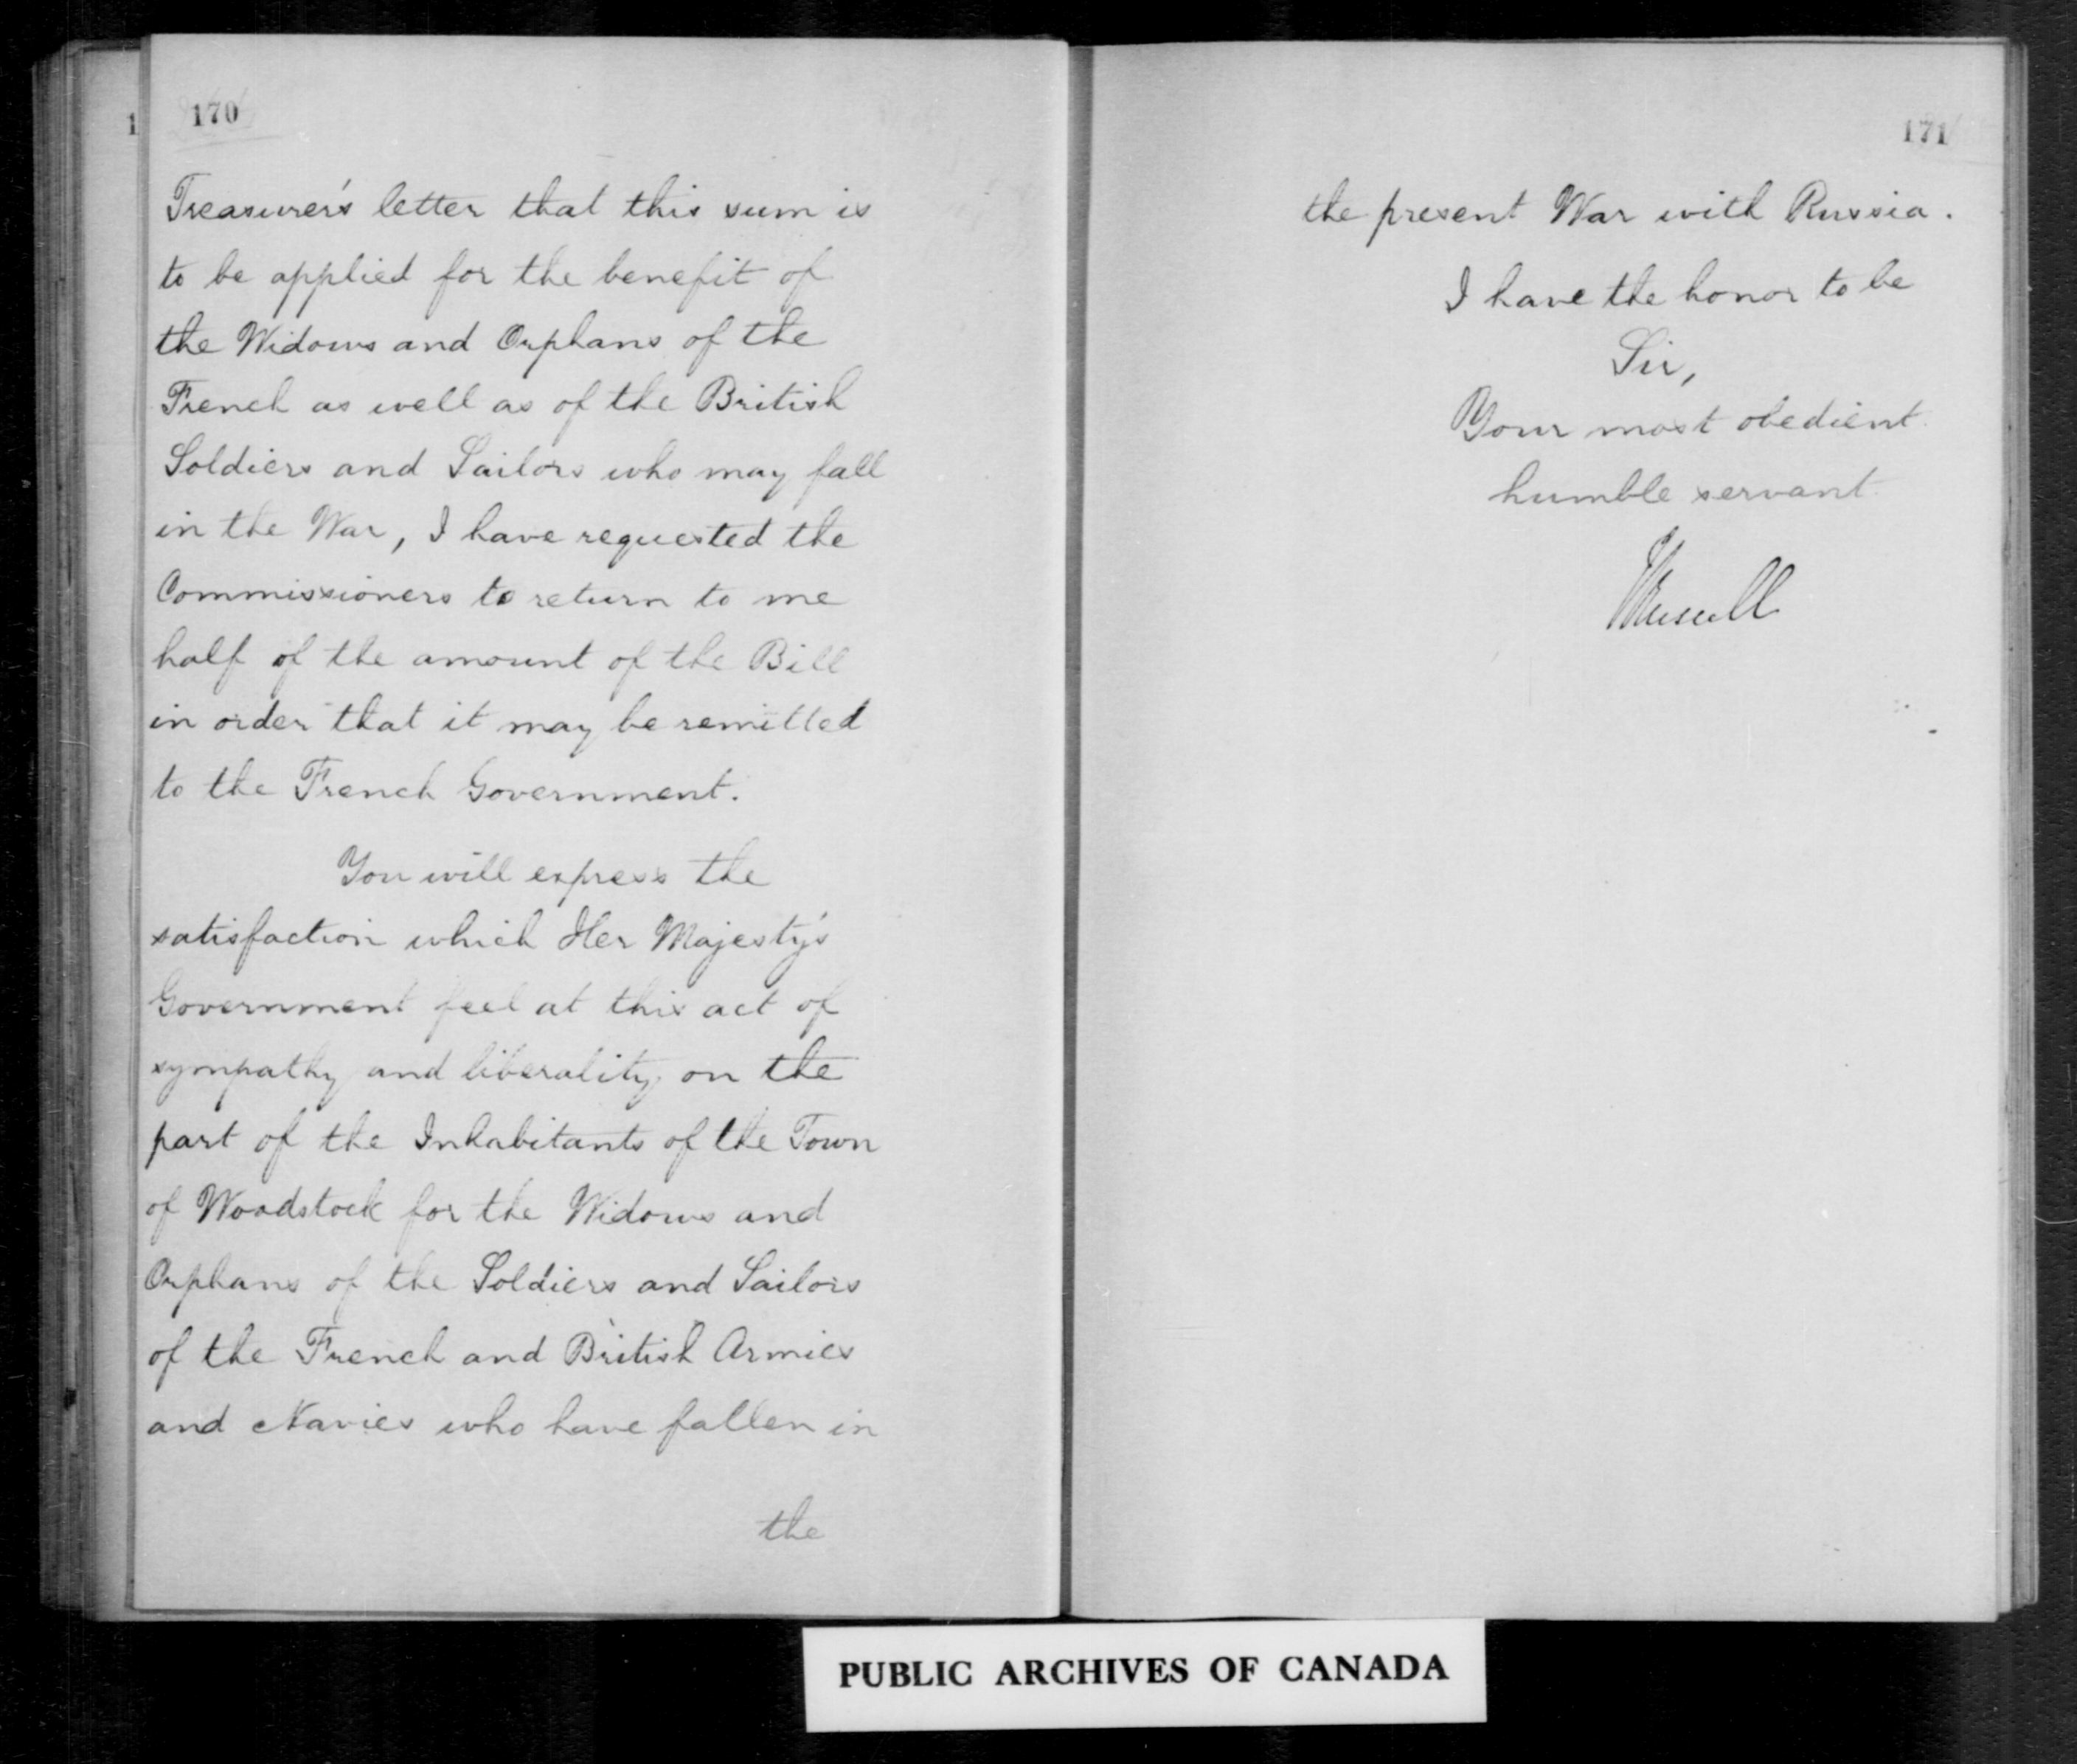 170
1
Treasurer's letter that this sum is
to be applied for the benefit of
the Widows and Orphans of the
French as well as of the British
Soldiers and Sailors who may fall
in the War, I have requested the
Commissioners to return to me
half of the amount of the Bill
in order that it may be remitted
to the French Government.
You will express the
satisfaction which Her Majesty's
Government feel at this act of
sympathy and liberality on the
part of the Inhabitants of the Town
of Woodstock for the Widows and
Orphans of the Soldiers and Sailors
of the French and British Armies
and Navies who have fallen in
the
171
the present War with Russia.
I have the honor to be
Sir,
Your most obedient
humble servant
J Russell
PUBLIC ARCHIVES OF CANADA